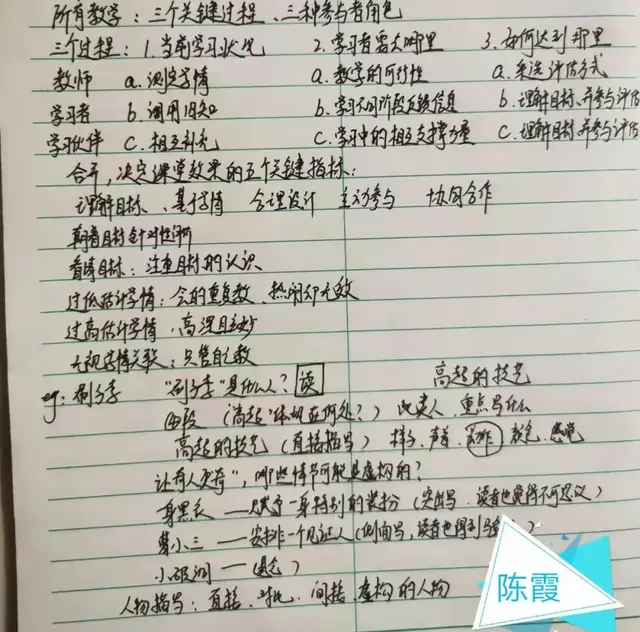 所有教学：三个关键过程、三种参与者角色
三个过程：1.当前学习状况 2.学习者需去哪里 3.如何达到那里
教师 a.测定学情 a.教学的可行性 a.采选评估方式
学习者 b.调用旧知 b.学习不同阶段反馈信息 b.理解目标、并参与评估
学习伙伴 c.相互补充 c.学习中的相互支撑力量 c.理解目标并参与评估
合并，决定课堂效果的五个关键指标：
理解目标、基于学情 合理设计 主动参与 协同合作
朝着目标针对性评价
看待目标：注重目标的认识
过低估计学情：会的重复教、热闹却无效
过高估计学情：高深且玄妙
无视学情关联：只管自己教
eg：刷子李 "刷子李"是什么人？读 高超的技艺
四段（"高超"体现在何处？）此类人，重点写什么
高超的技艺（直接描写）样子、声音、动作、颜色、感觉
让奇人更奇"，哪些情节可能是虚构的？
一身黑衣——赋予一身特别的装扮（突出写、读者也觉得不可思议）
曹小三——安排一个见证人（侧面写，读者也得到
小破洞——（悬念）
人物描写：直接、对比、间接、虚构的人物
陈霞